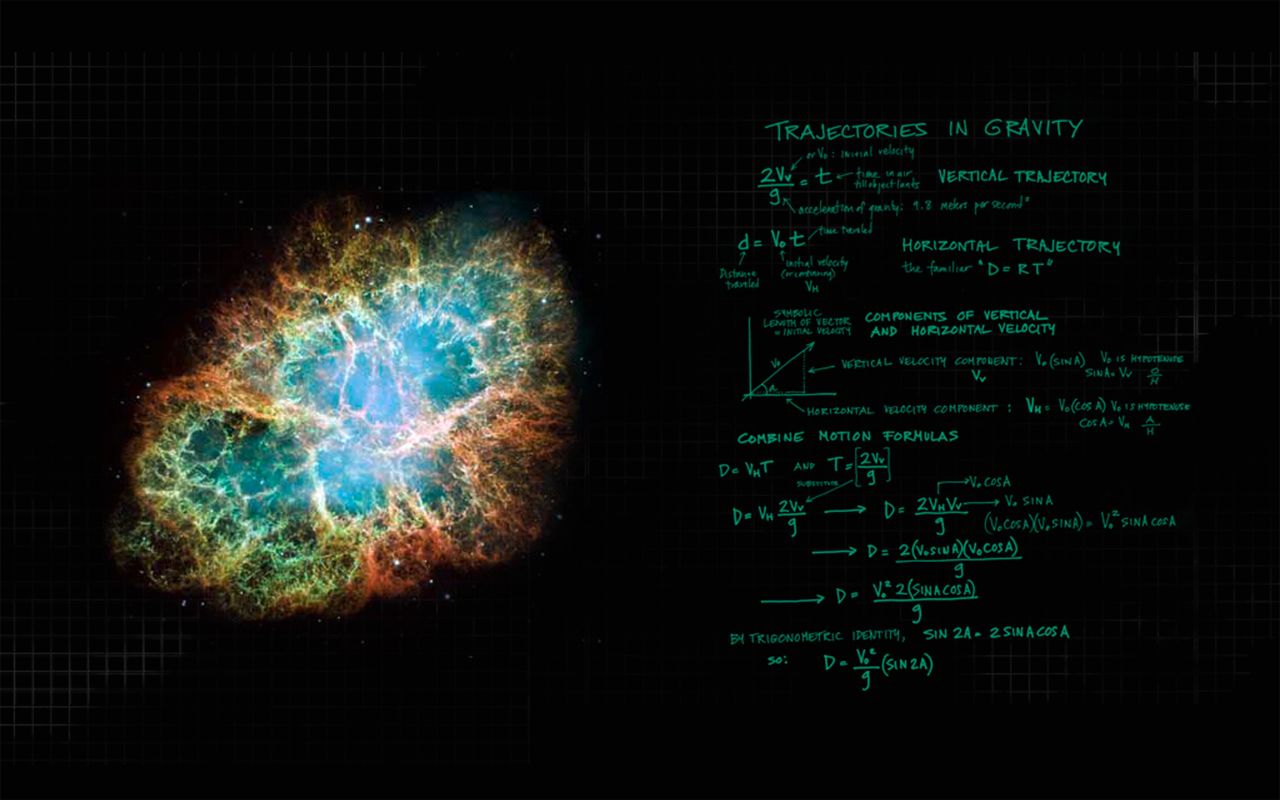 TRAJECTORIES IN GRAVITY
or V₀ : initial velocity
2Vv/g = t ← time in air till object lands VERTICAL TRAJECTORY
acceleration of gravity: 9.8 meters per second²
d = V₀ t time traveled HORIZONTAL TRAJECTORY
Distance traveled
initial velocity
VH
the familiar "D = RT"
SYMBOLIC
LENGTH OF VECTOR
= INITIAL VELOCITY
COMPONENTS OF VERTICAL
AND HORIZONTAL VELOCITY
V₀
a
VERTICAL VELOCITY COMPONENT: V₀(SINA) V₀ IS HYPOTENUSE
Vv SINA= Vv O/H
HORIZONTAL VELOCITY COMPONENT : VH = V₀(COSA) V₀ IS HYPOTENUSE
COSA= VH A/H
COMBINE MOTION FORMULAS
D = VHT AND T = [2Vv/g]
SUBSTITUTE
D = VH 2Vv/g → D = 2VHVv/g
→ V₀ COSA
→ V₀ SINA
(V₀COSA)(V₀SINA) = V₀² SINACOSA
→ D = 2(V₀SINA)(V₀COSA)/g
→ D = V₀² 2(SINACOSA)/g
BY TRIGONOMETRIC IDENTITY, SIN 2A = 2SINACOSA
SO: D = V₀²/g (SIN2A)